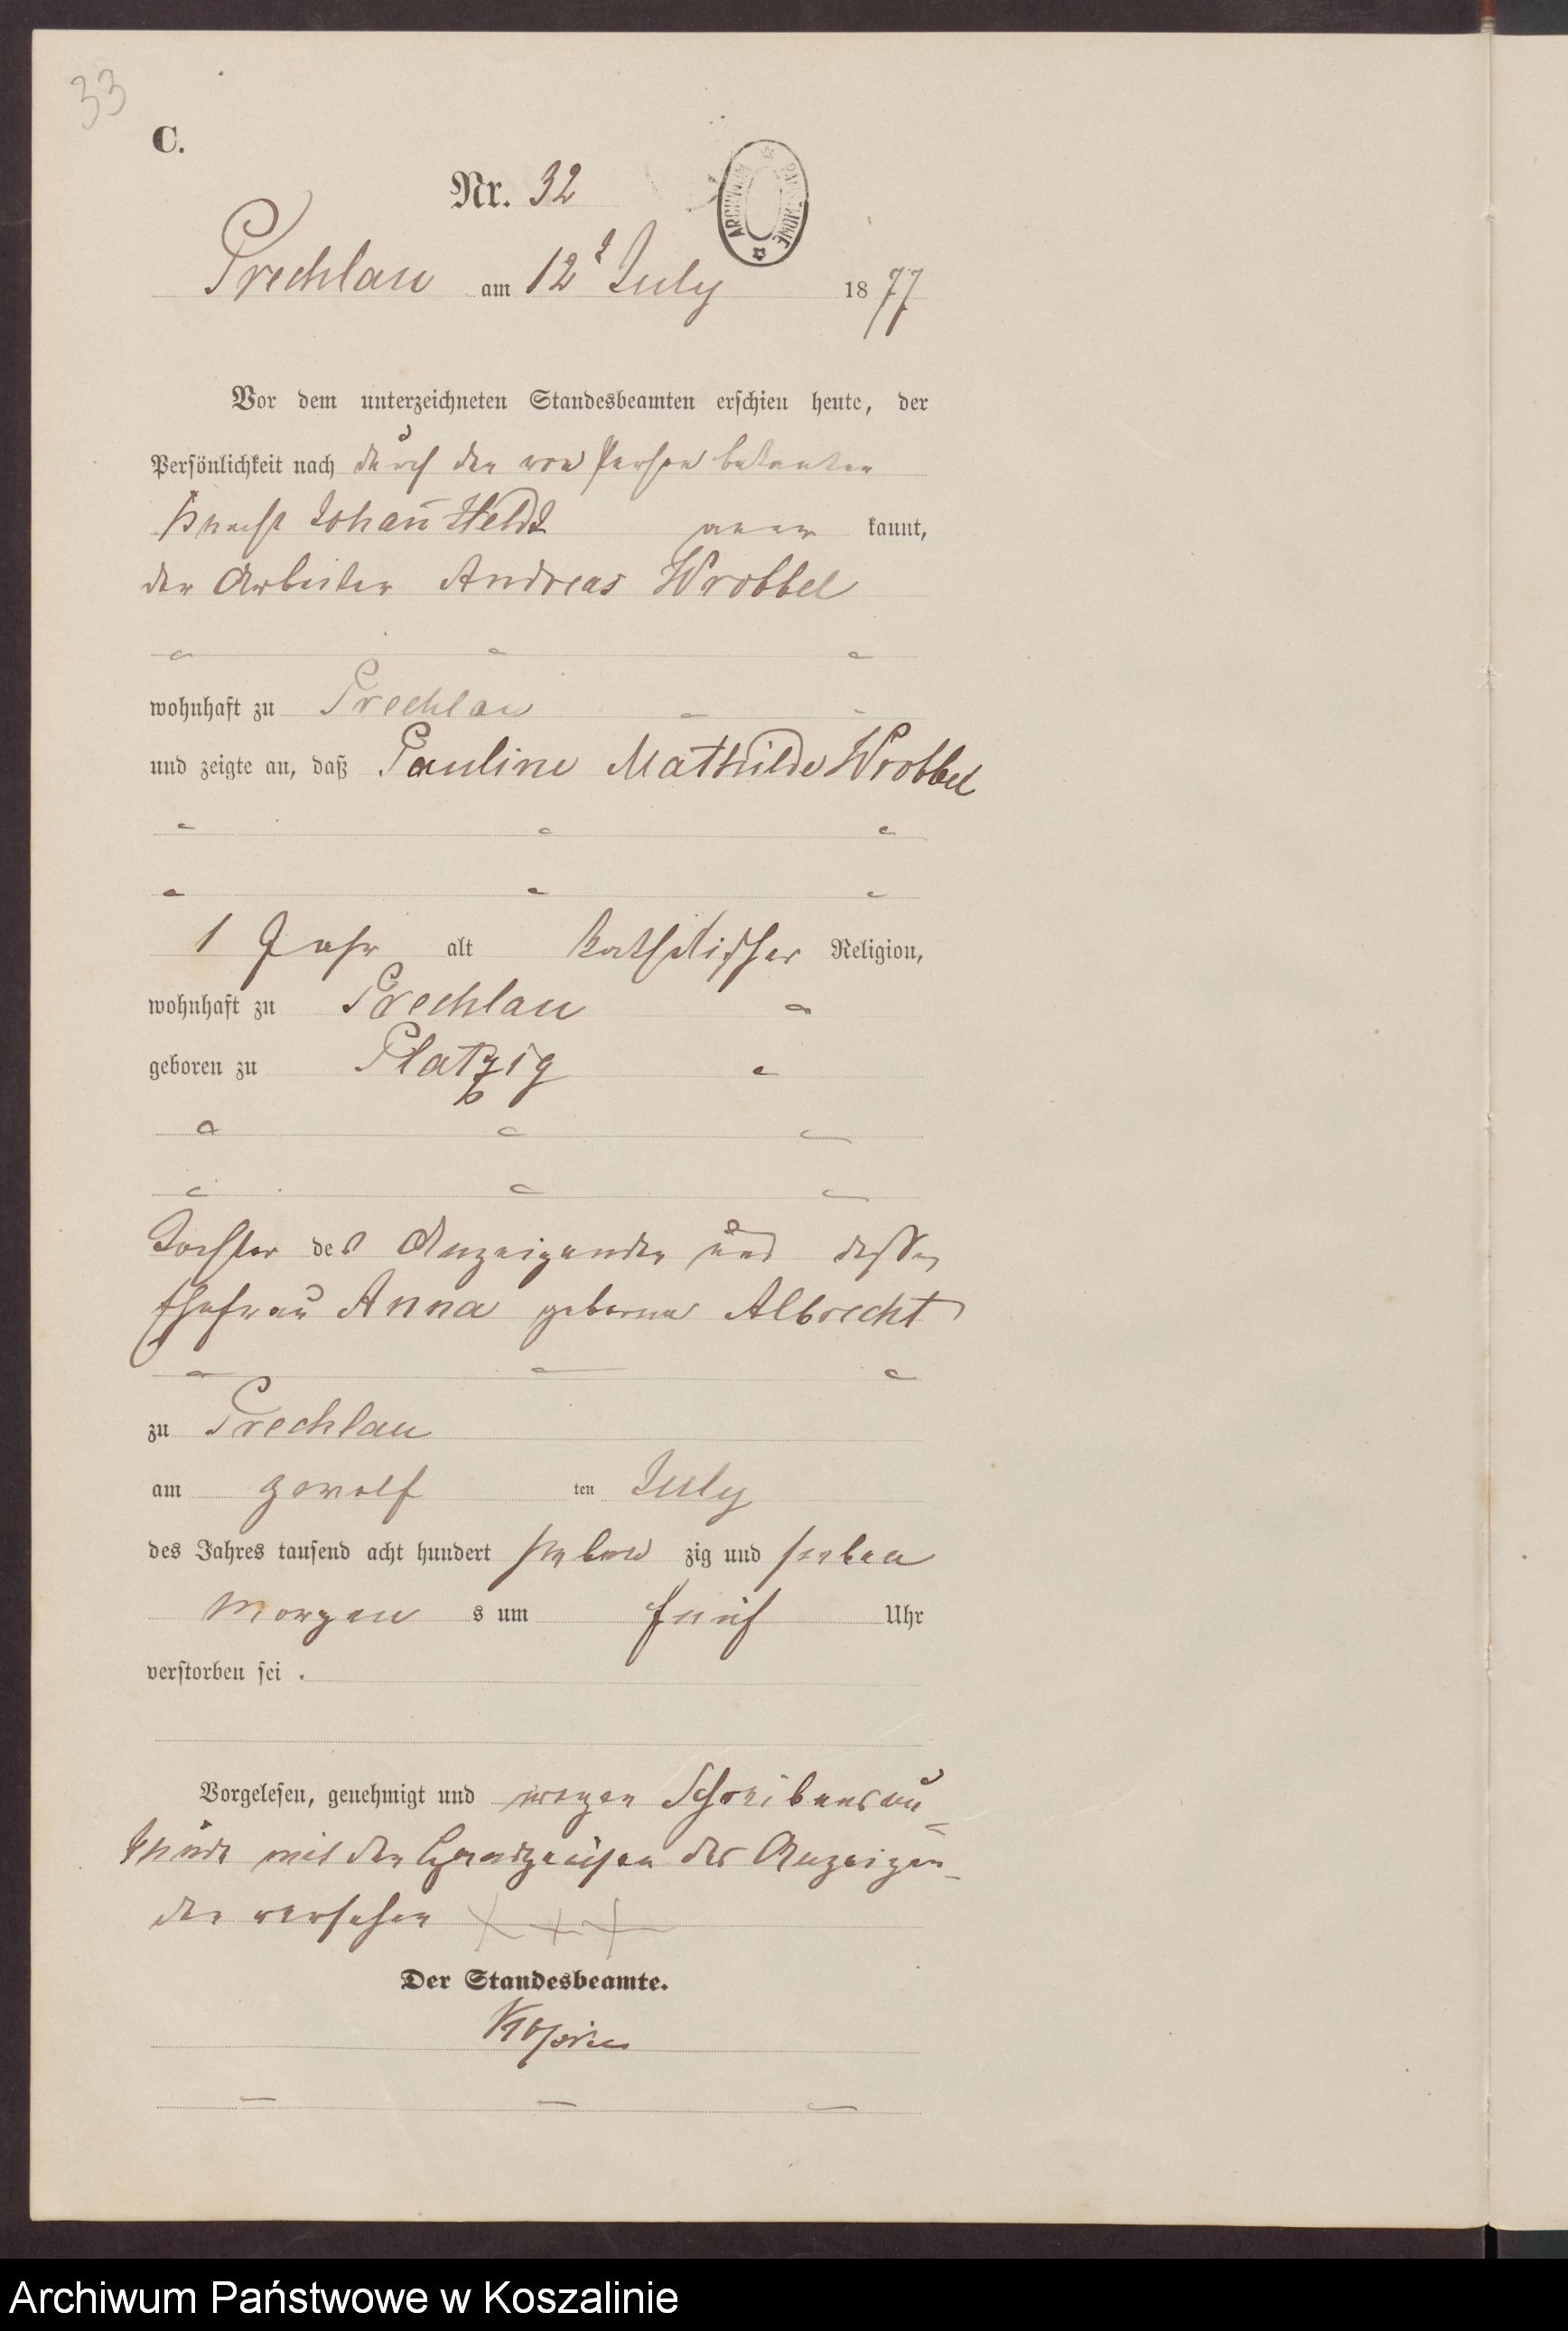 33
C.
Nr. 32
ARCHIWUM PAŃSTWOWE
Prechlau am 12t July 1877
Vor dem unterzeichneten Standesbeamten erschien heute, der
Persönlichkeit nach durch den von Person bekannten
Knecht Johan̄ Heldt aner kannt,
der Arbeiter Andreas Wrobbel
wohnhaft zu Prechlau
und zeigte an, daß Pauline Mathilde Wrobbel
1 Jahr alt katholischer Religion,
wohnhaft zu Prechlau
geboren zu Platzig
Tochter des Anzeigenden und dessen
Ehefrau Anna geborene Albrecht
zu Prechlau
am zwoelf ten July
des Jahres tausend acht hundert sieben zig und sieben
Morgen s um fünf Uhr
verstorben sei .
Vorgelesen, genehmigt und wegen Schreibensun=
kunde mit den Handzeichen des Anzeigen-
den versehen + + +
Der Standesbeamte.
Archiwum Państwowe w Koszalinie